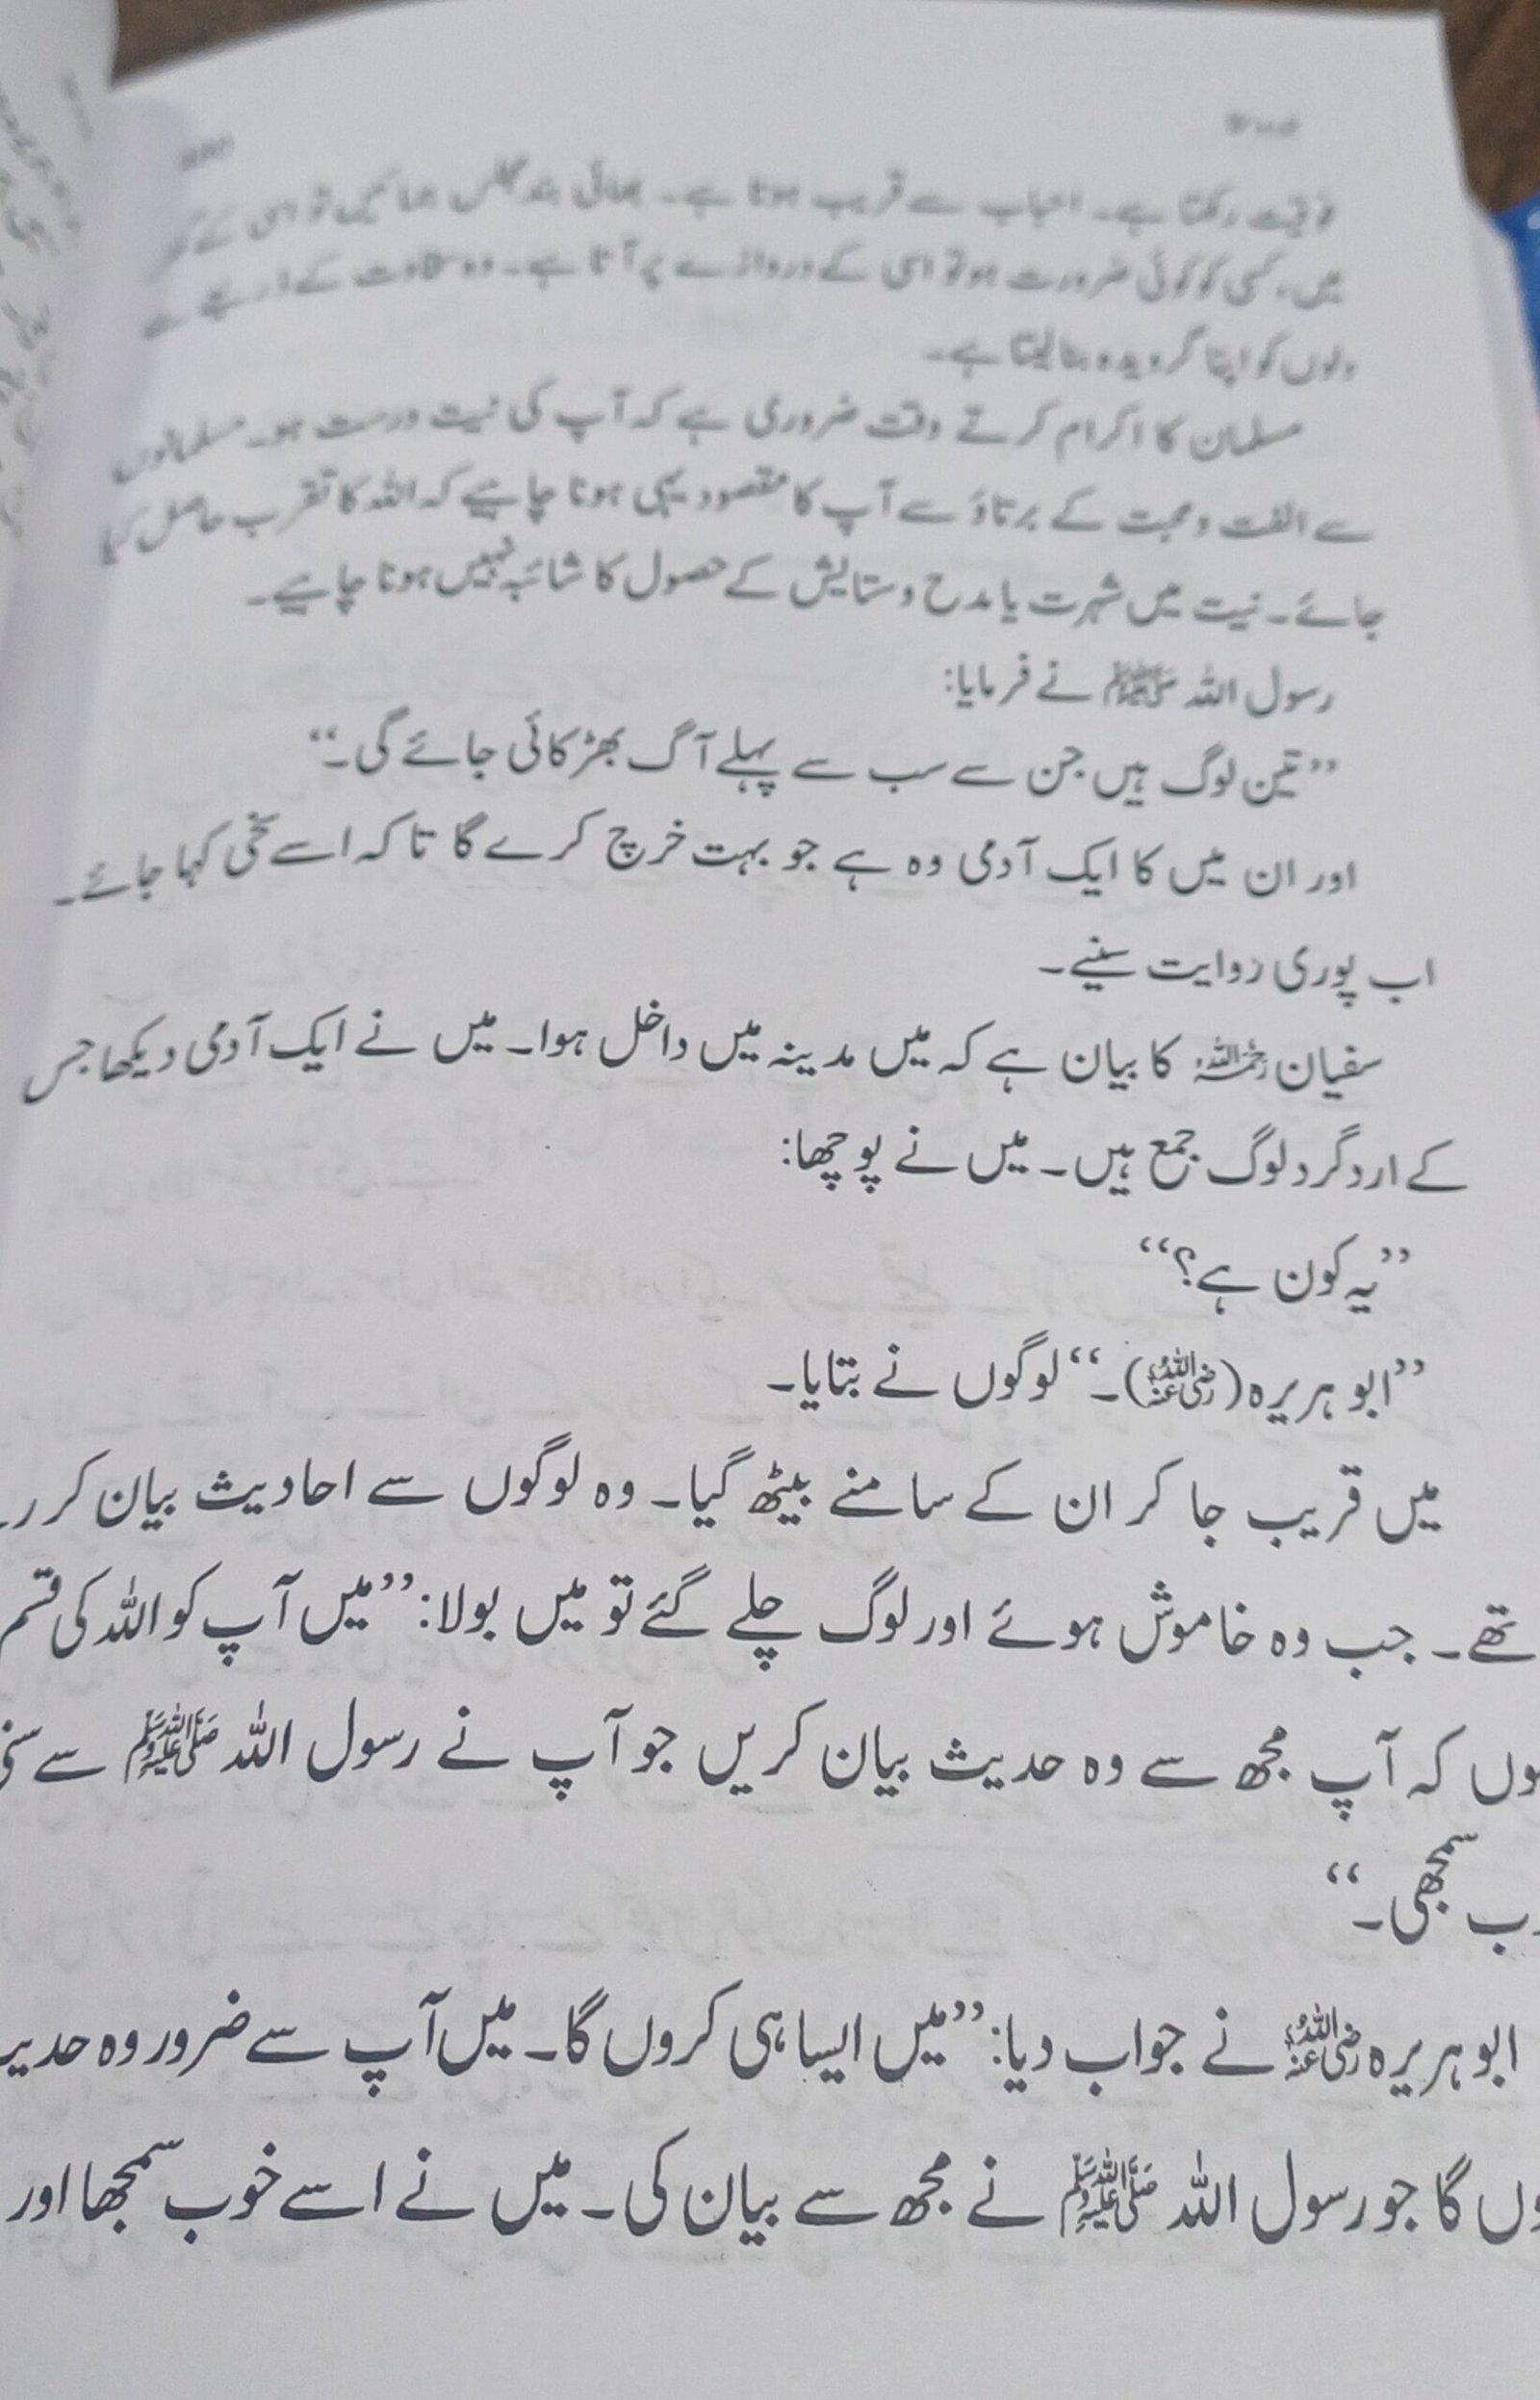 فوقیت رکھتا ہے۔ احباب سے قریب ہوتا ہے۔ بھائی بند مجلس جمائیں تو اسی کے
میں، کسی کو کوئی ضرورت ہو تو اسی کے دروازے پر آتا ہے۔ وہ سخاوت کے ذریعے سے
دلوں کو اپنا گرویدہ بنا لیتا ہے۔
مسلمان کا اکرام کرتے وقت ضروری ہے کہ آپ کی نیت درست ہو۔ مسلمانوں
سے الفت و محبت کے برتاؤ سے آپ کا مقصود یہی ہونا چاہیے کہ اللہ کا تقرب حاصل کیا
جائے۔ نیت میں شہرت یا مدح و ستایش کے حصول کا شائبہ نہیں ہونا چاہیے۔
رسول اللہ ﷺ نے فرمایا:
”تین لوگ ہیں جن سے سب سے پہلے آگ بھڑکائی جائے گی۔“
اور ان میں کا ایک آدمی وہ ہے جو بہت خرچ کرے گا تاکہ اسے سخی کہا جائے۔
اب پوری روایت سنیے۔
سفیان رحمہ اللہ کا بیان ہے کہ میں مدینہ میں داخل ہوا۔ میں نے ایک آدمی دیکھا جس
کے ارد گرد لوگ جمع ہیں۔ میں نے پوچھا:
”یہ کون ہے؟“
”ابو ہریرہ (رضی اللہ عنہ)۔“ لوگوں نے بتایا۔
میں قریب جا کر ان کے سامنے بیٹھ گیا۔ وہ لوگوں سے احادیث بیان کر
تھے۔ جب وہ خاموش ہوئے اور لوگ چلے گئے تو میں بولا: ”میں آپ کو اللہ کی قسم
وں کہ آپ مجھ سے وہ حدیث بیان کریں جو آپ نے رسول اللہ ﷺ سے
ب سمجھی۔“
ابو ہریرہ رضی اللہ عنہ نے جواب دیا: ”میں ایسا ہی کروں گا۔ میں آپ سے ضرور وہ حدیـ
وں گا جو رسول اللہ ﷺ نے مجھ سے بیان کی۔ میں نے اسے خوب سمجھا اور